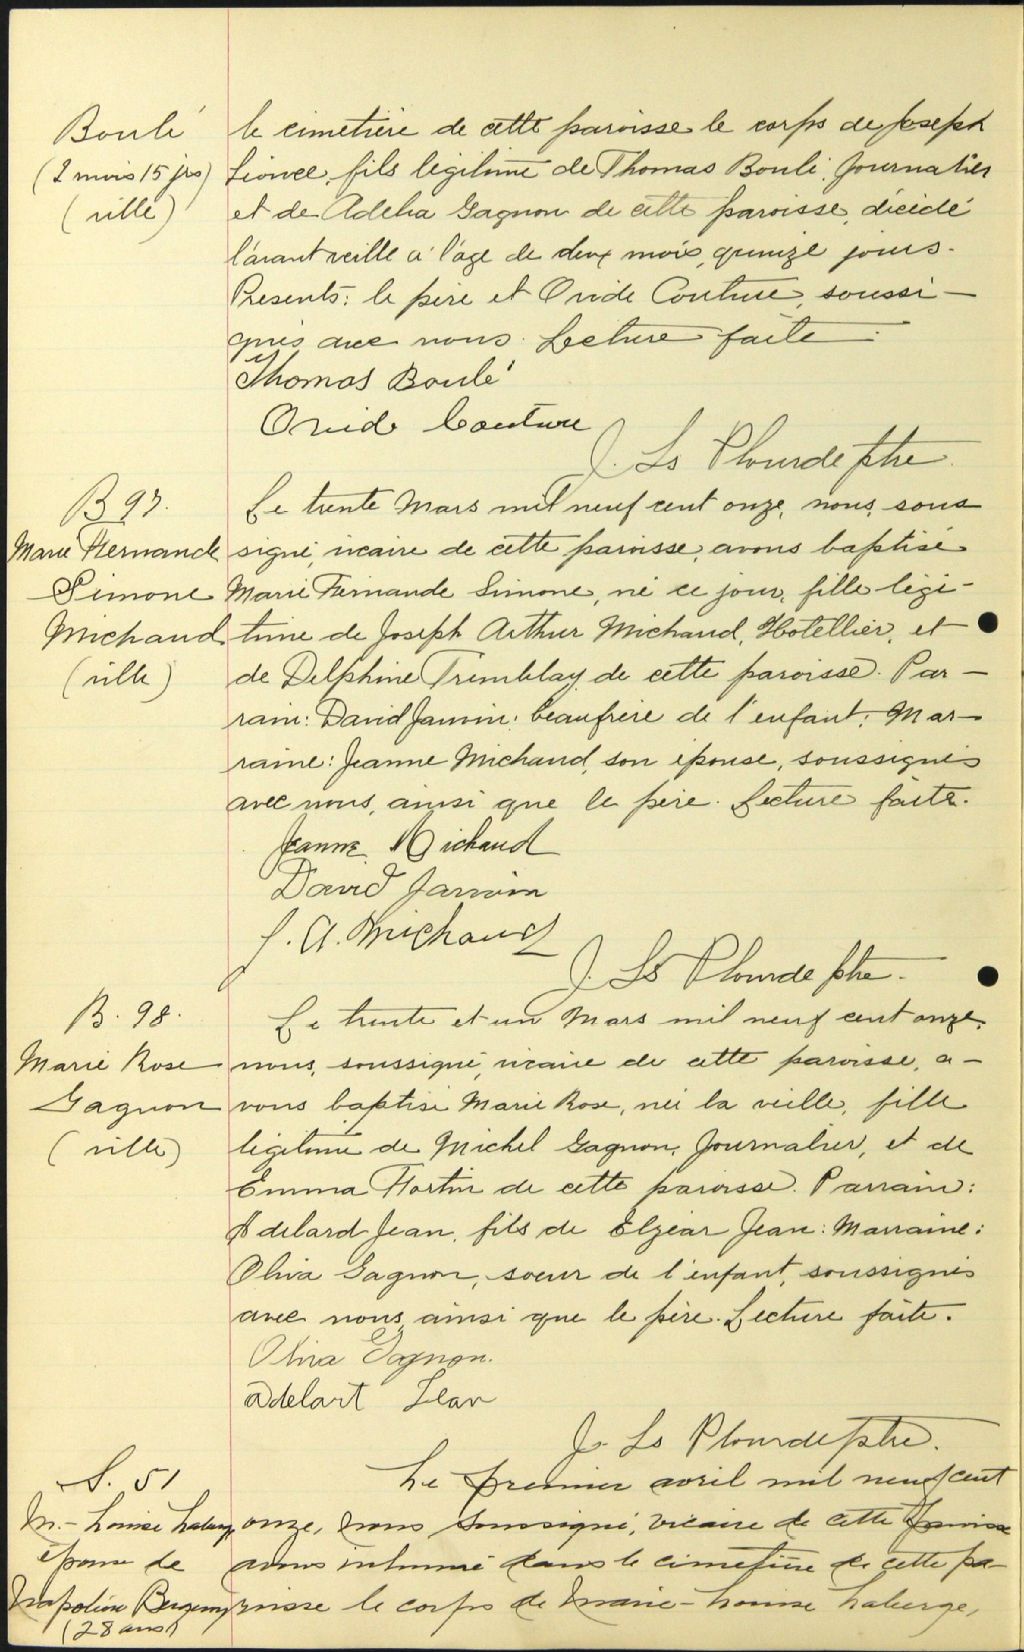 Boulé
(2 mois 15 jrs)
(ville)
le cimetière de cette paroisse le corps de Joseph
Lionel, fils légitime de Thomas Boulé, Journalier
et de Adelia Gagnon de cette paroisse, décédé
l'avant veille a l'âge de deux mois, quinze jours.
Présents: le père et Ovide Couture, soussi-
gnés avec nous. Lecture faite.
Thomas Boulé
Ovide Couture
J. Ls Plourde ptre.
B 97.
Marie Fernande
Simone
Michaud
(ville)
Le trente Mars mil neuf cent onze, nous, sous
signé, vicaire de cette paroisse, avons baptisé
Marie Fernande Simone, né ce jour, fille légi-
time de Joseph Arthur Michaud, Hotellier, et
de Delphine Tremblay de cette paroisse. Par-
rain: David Janvin, beaufrère de l'enfant; Mar-
raine: Jeanne Michaud, son épouse, soussignés
avec nous, ainsi que le père. Lecture faite.
Jeanne Michaud
David Janvin
J. A. Michaud
J. Ls Plourde ptre.
B. 98.
Marie Rose
Gagnon
(ville)
Le trente et un Mars mil neuf cent onze,
nous, soussigné, vicaire de cette paroisse, a-
vons baptisé Marie Rose, née la veille, fille
légitime de Michel Gagnon, Journalier, et de
Emma Fortin de cette paroisse. Parrain:
Adelard Jean, fils de Elzéar Jean: Marraine:
Oliva Gagnon, soeur de l'enfant, soussignés
avec nous, ainsi que le père. Lecture faite.
Oliva Gagnon.
Adelart Jean
J. Ls Plourde ptre.
S. 51
M.-Louise Laberge
épouse de
Napoléon Bergeron
(28 ans)
Le premier avril mil neuf cent
onze, nous soussigné, vicaire de cette paroisse
avons inhumé dans le cimetière de cette pa-
roisse le corps de Marie-Louise Laberge,